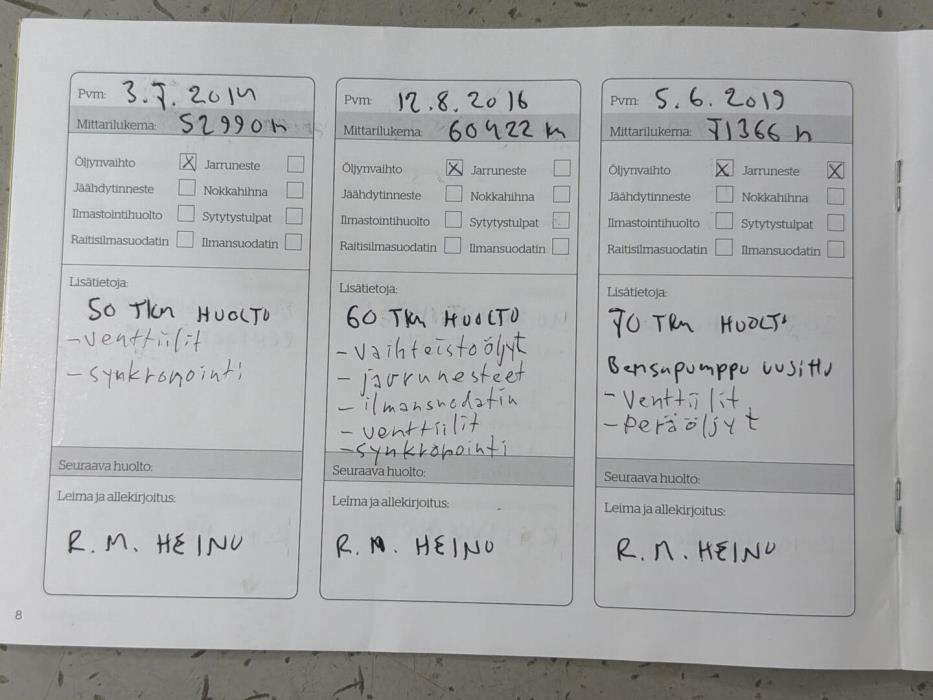 Pvm: 3.7.2014
Mittarilukema: 52990 h
Öljynvaihto X Jarruneste
Jäähdytinneste Nokkahihna
Ilmastointihuolto Sytytystulpat
Raitisilmasuodatin Ilmansuodatin
Lisätietoja:
50 Tkm HUOLTO
- venttiilit
- synkronointi
Seuraava huolto:
Leima ja allekirjoitus:
R. M. HEINO
Pvm: 12.8.2016
Mittarilukema: 60422 km
Öljynvaihto X Jarruneste
Jäähdytinneste Nokkahihna
Ilmastointihuolto Sytytystulpat
Raitisilmasuodatin Ilmansuodatin
Lisätietoja:
60 Tkm HUOLTO
- vaihteistoöljyt
- jarrunesteet
- ilmansuodatin
- venttiilit
- synkronointi
Seuraava huolto:
Leima ja allekirjoitus:
R. M. HEINO
Pvm: 5.6.2019
Mittarilukema: 71366 h
Öljynvaihto X Jarruneste X
Jäähdytinneste Nokkahihna
Ilmastointihuolto Sytytystulpat
Raitisilmasuodatin Ilmansuodatin
Lisätietoja:
70 Tkm HUOLTO
Bensapumppu uusittu
- Venttiilit
- peräöljyt
Seuraava huolto:
Leima ja allekirjoitus:
R. M. HEINO
8